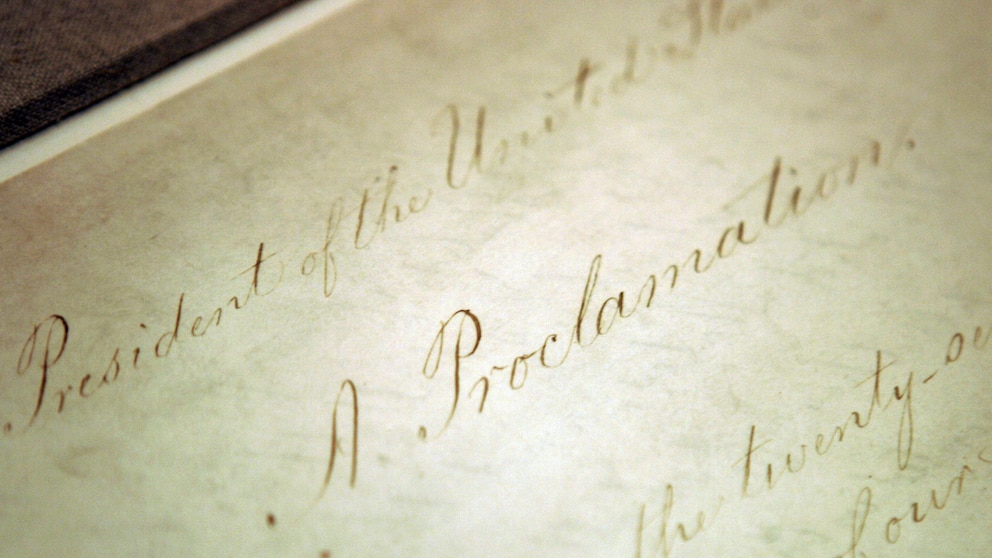 President of the United States
A Proclamation.
the twenty-se
of our